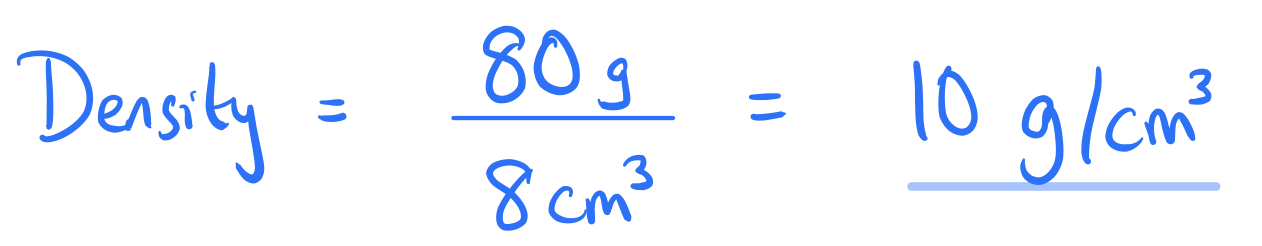 Density = 80 g / 8 cm³ = 10 g/cm³